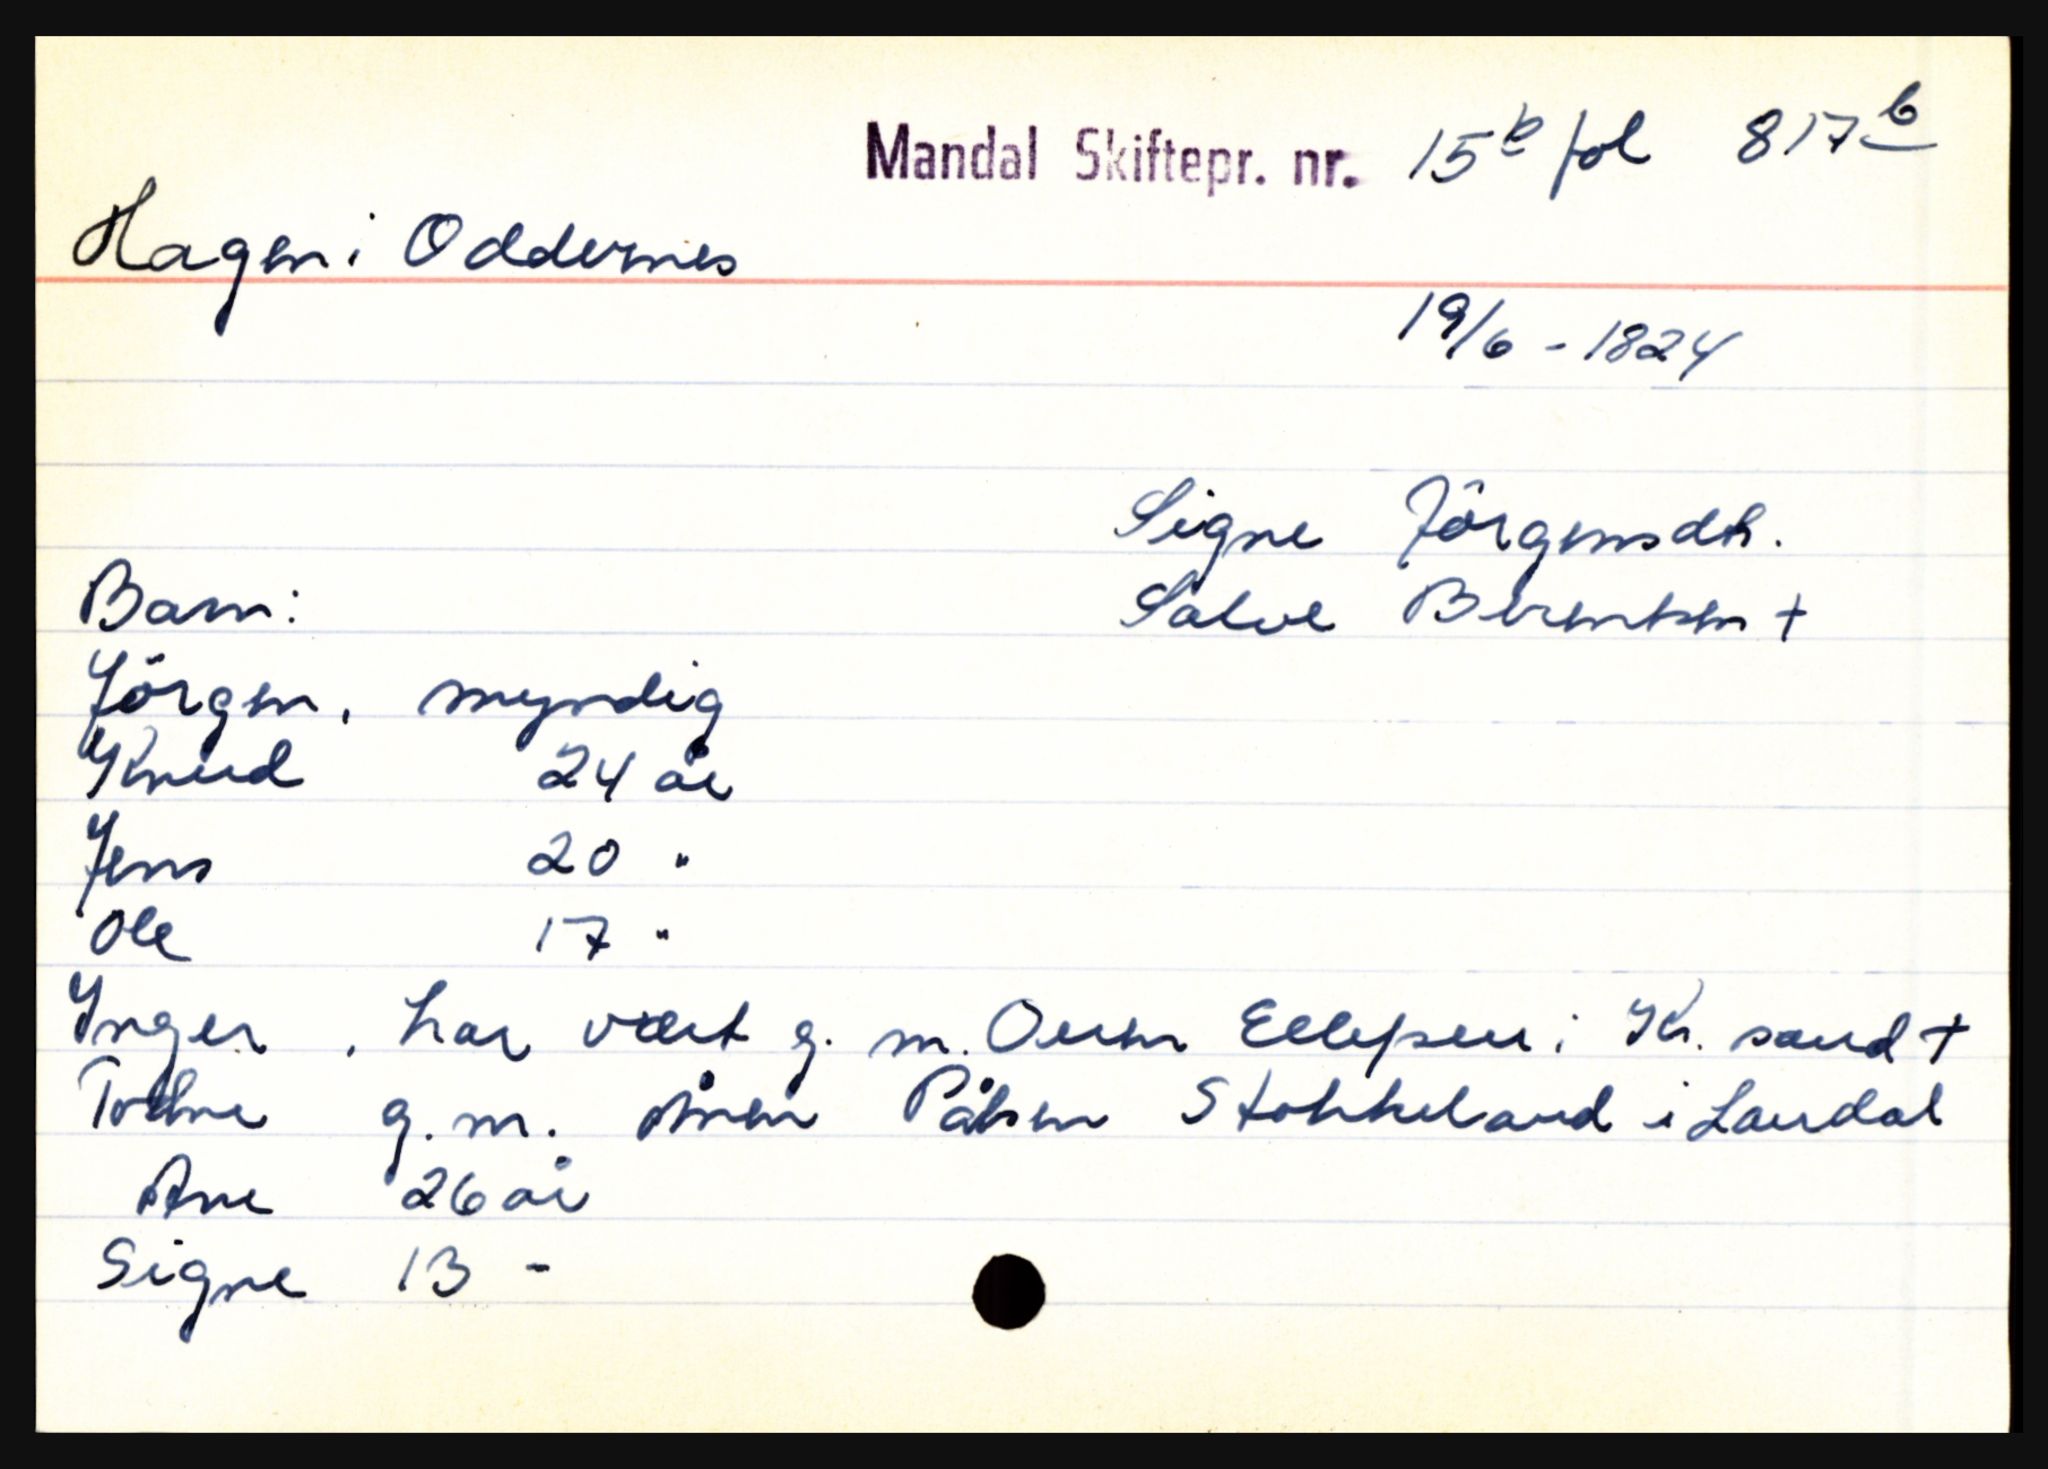 Mandal Skiftepr. nr. 15b fol 817b
Hagen i Oddernes
19/6 - 1824
Signe Jörgensdtr.
Barn: Salve Berentsen +
Jörgen, myndig
Knud 24 år
Jens 20 "
Ole 17 "
Inger, har vært g. m. Ellefsen i Kr. sand +
g. m. Pålsen Stokkeland i Laudal
Ane 26 år
Signe 13 -